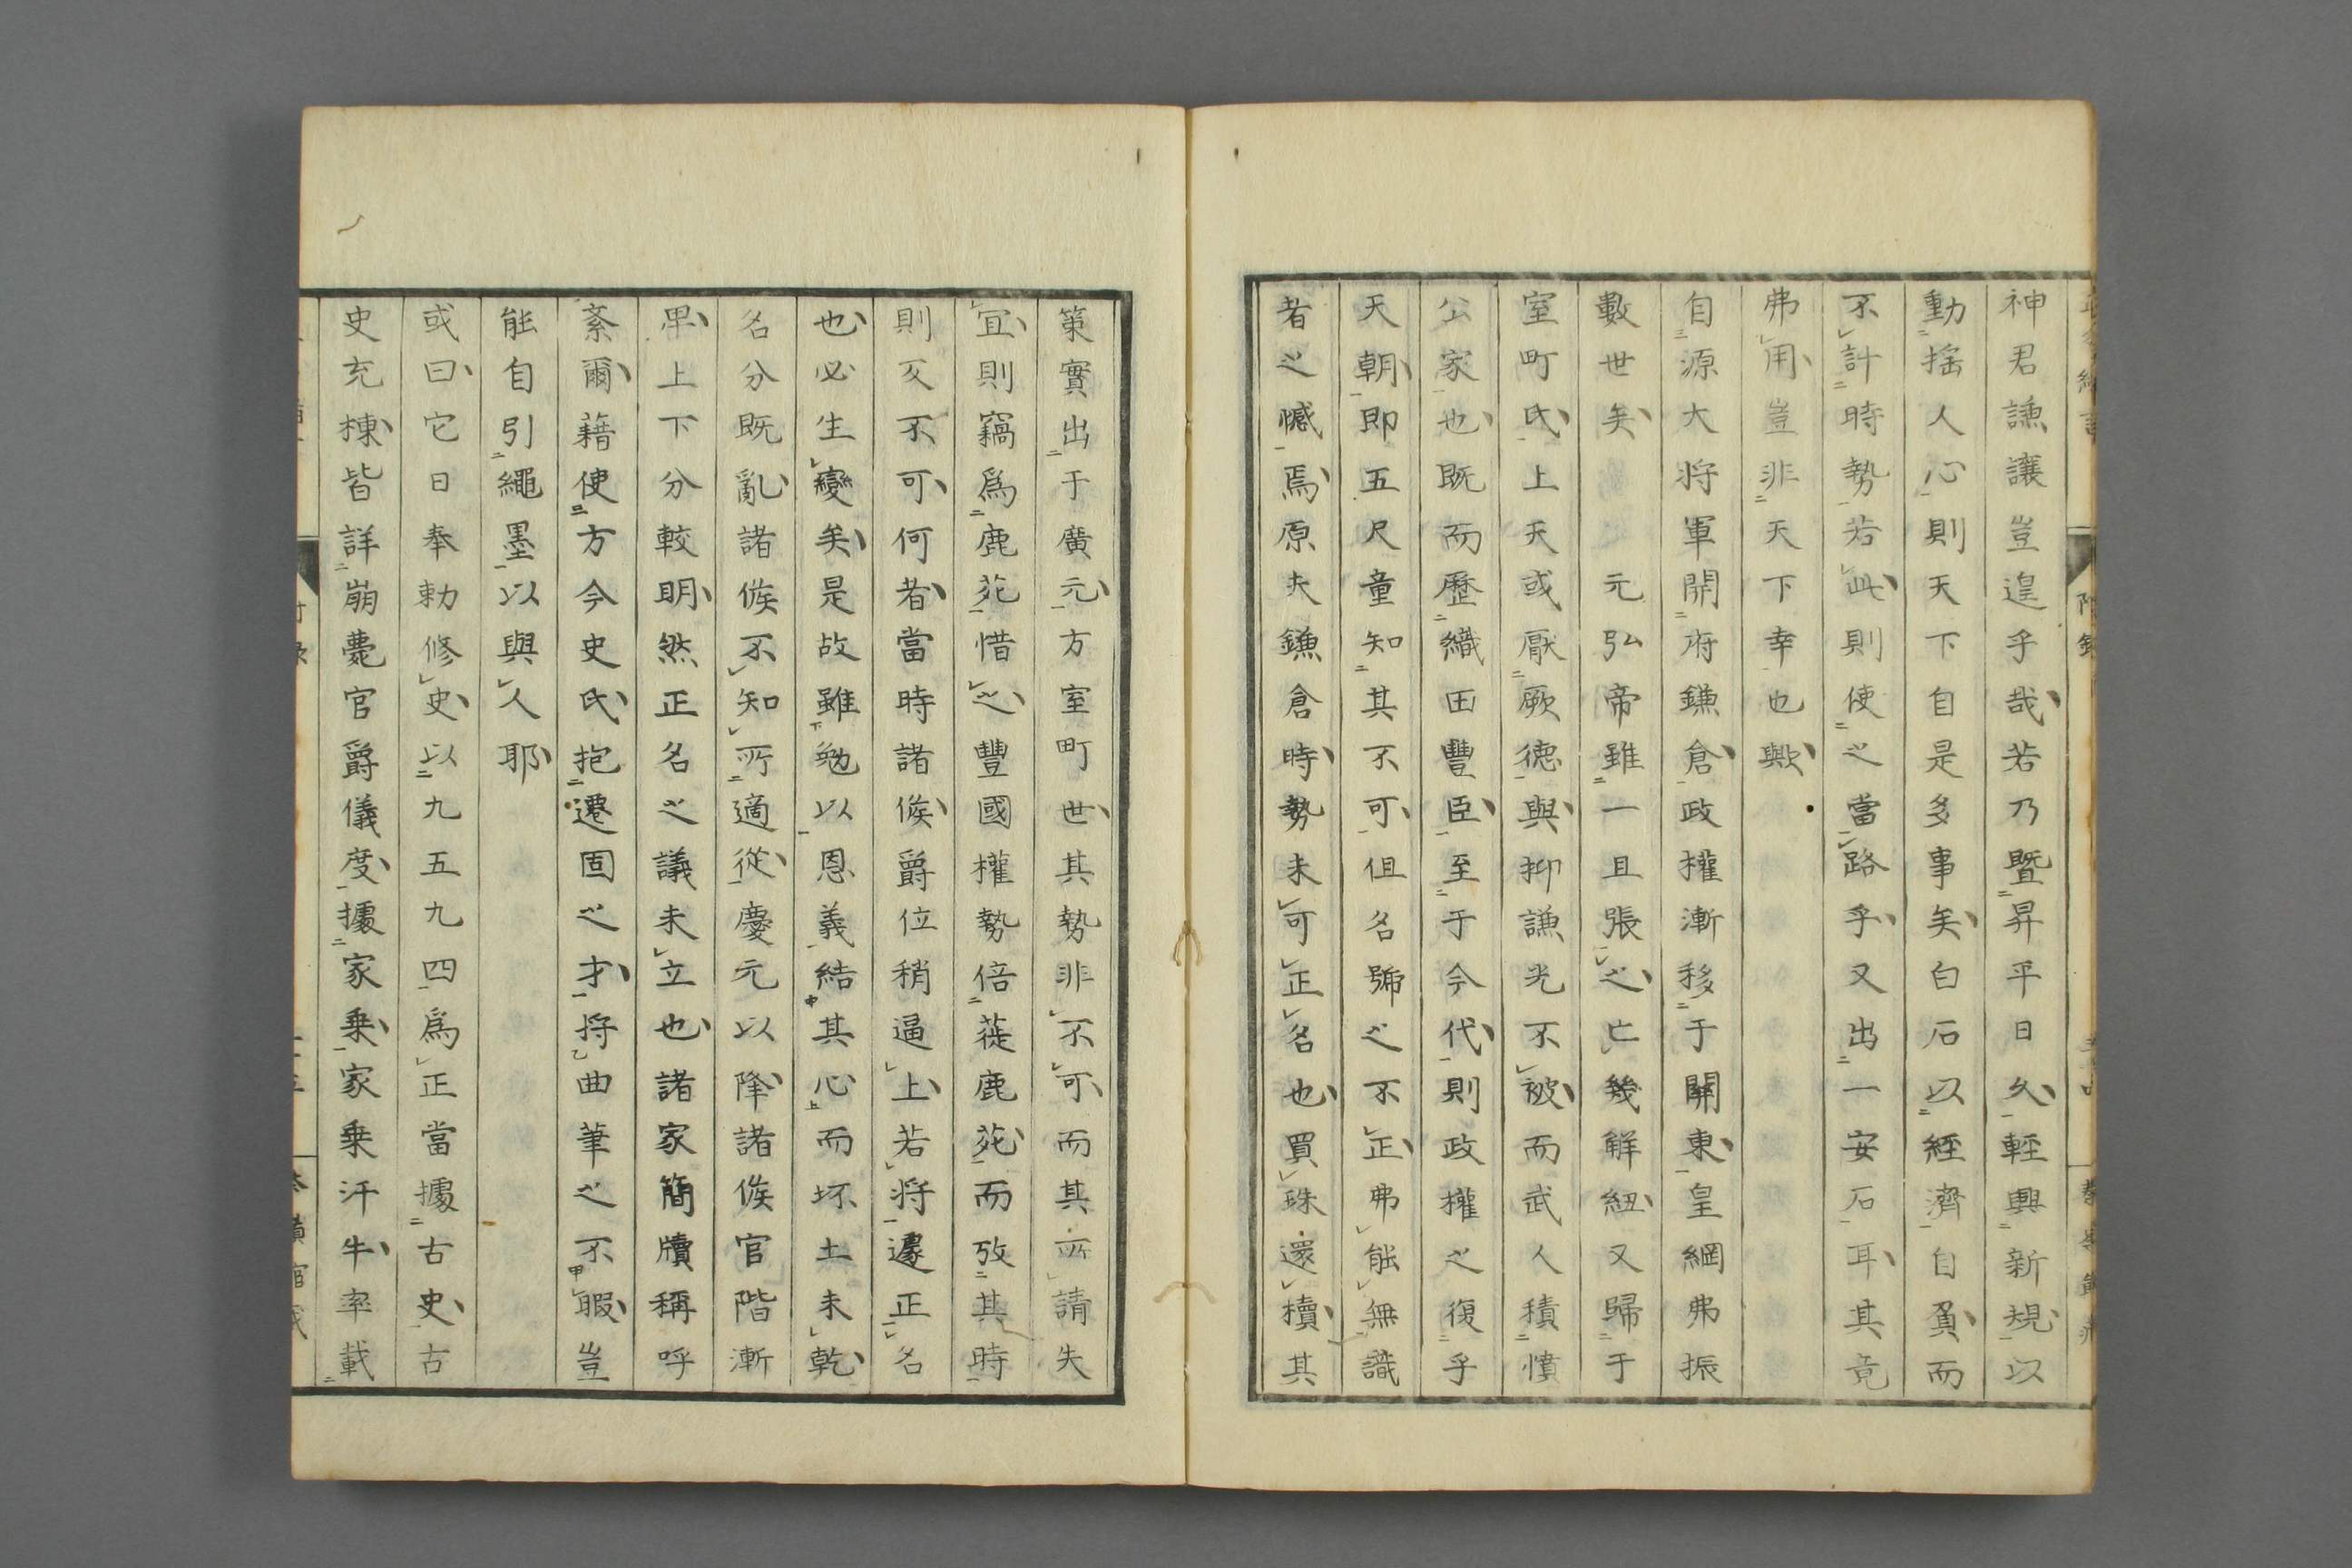 神君謙讓豈遑乎哉若乃曁昇平日久輕興新規以
動搖人心則天下自是多事矣白石以經濟自負而
不計時勢若此則使之當路乎又出一安石耳其竟
弗用豈非天下幸也歟
自源大将軍開府鎌倉政權漸移于關東皇綱弗振
數世矣元弘帝雖一且張之亡幾解紐又歸于
室町氏上天或厭厥德與抑謙光不被而武人積憤
公家也既而歷織田豐臣至于今代則政權之復乎
天朝即五尺童知其不可但名號之不正弗能無識
者之憾焉原夫鎌倉時勢未可正名也買珠還櫝其
策實出于廣元方室町世其勢非不可而其所請失
冝則竊爲鹿苑惜之豐國權勢倍蓰鹿苑而攷其時
則亥不可何者當時諸侯爵位稍逼上若将遽正名
也必生變矣是故雖勉以恩義結其心而坏土未乾
名分既亂諸侯不知所適從慶元以降諸侯官階漸
卑上下分較明然正名之議未立也諸家簡牘稱呼
紊爾藉使方今史氏抱遷固之才将曲筆之不暇豈
能自引繩墨以與人耶
或曰它日奉勅修史以九五九四爲正當據古史古
史充棟皆詳崩薨官爵儀度據家乗家乗汗牛率載
附錄